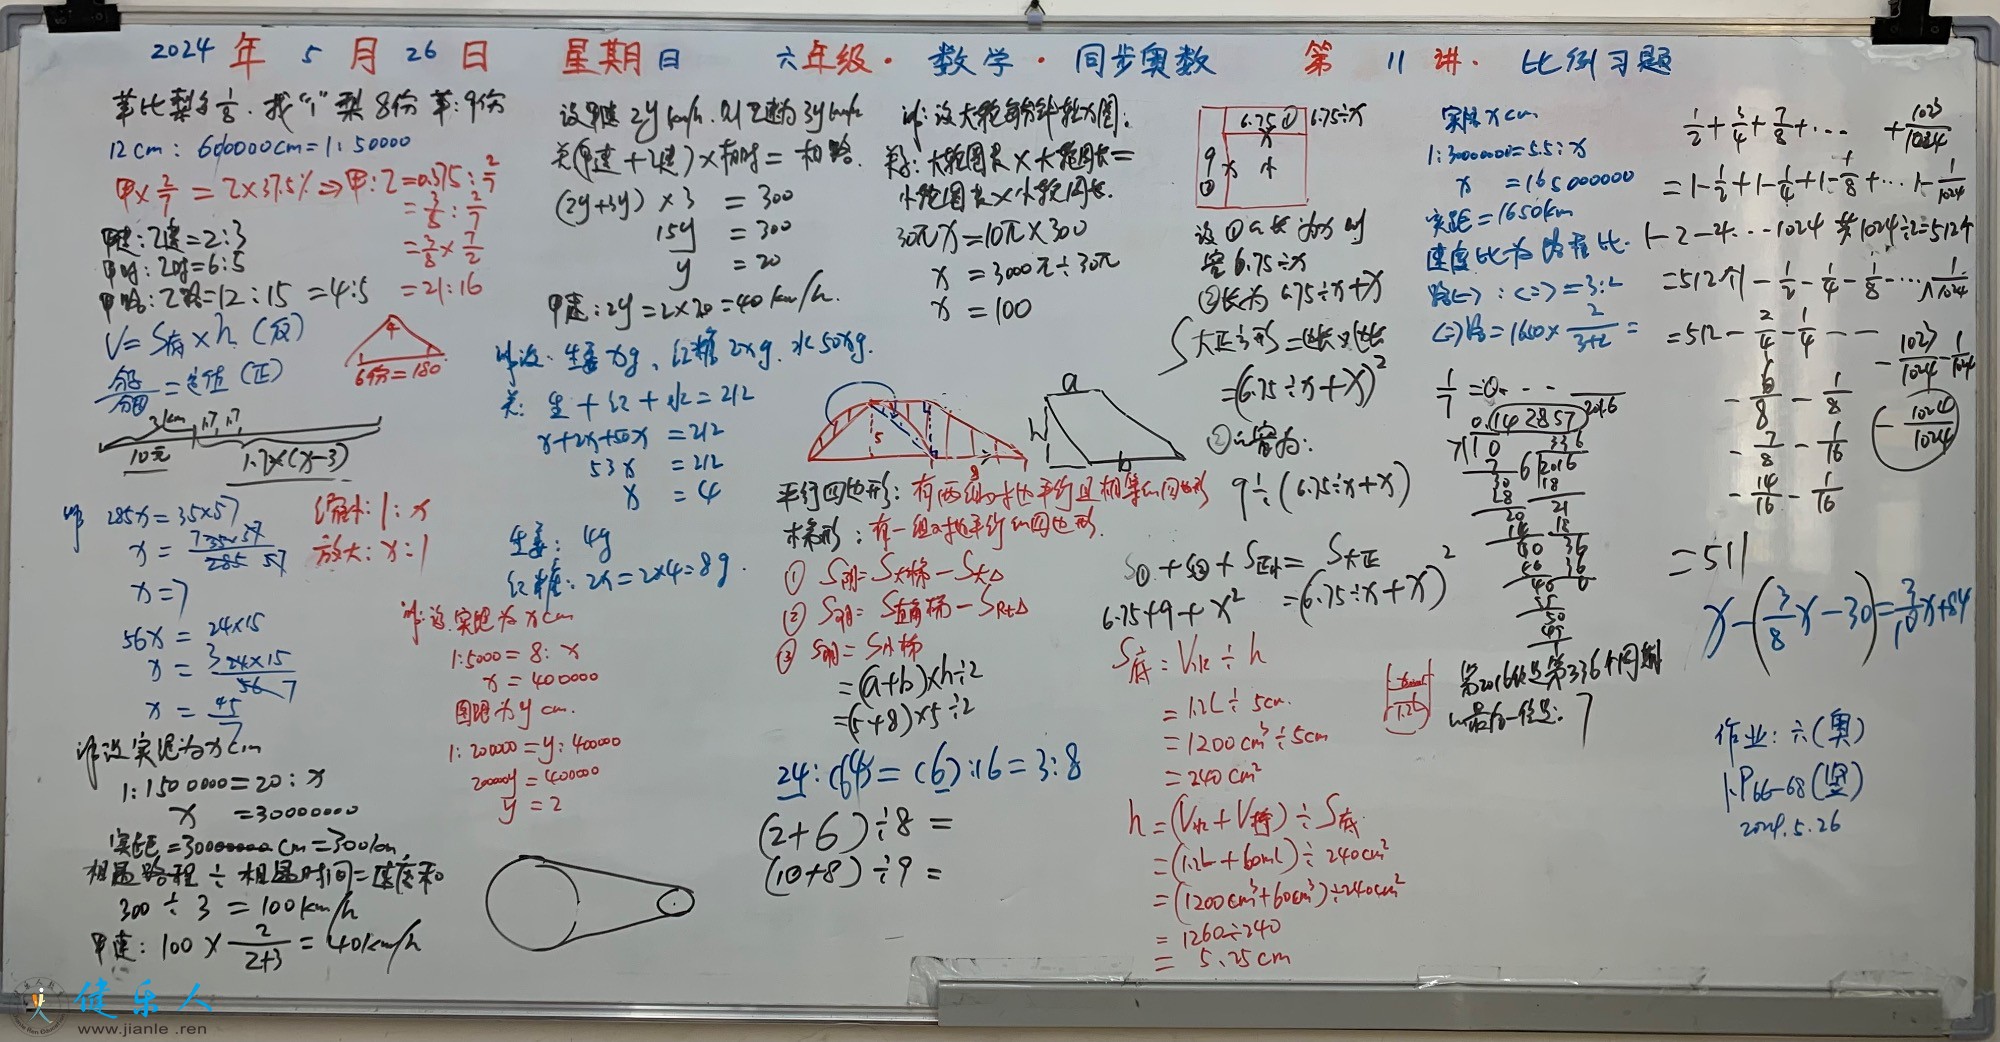 2024年5月26日 星期日 六年级·数学·同步奥数 第11讲·比例习题
苹比梨多1/8.找"1" 梨8份 苹:9份
12cm:600000cm=1:50000
甲×2/7=乙×37.5%⇒甲:乙=0.375:2/7
=3/8:2/7
=3/8×7/2
=21:16
甲速:乙速=2:3
甲时:乙时=6:5
甲路:乙路=12:15=4:5
V=S底×h(反)
分子/分母=定值(正)
4
1
1
6份=180
3km 1.7 1.7
10元
1.7×(x-3)
解 285x=35×57
x=735×57/285 57
x=7
56x=24×15
x=324×15/56 7
x=45/7
缩小:1:x
放大:x:1
解设实距为xcm
1:1500000=20:x
x=30000000
实距=30000000cm=300km
相遇路程÷相遇时间=速度和
300÷3=100km/h
甲速:100×2/(2+3)=40km/h
设甲速2ykm/h.则乙速为3ykm/h
关(甲速+乙速)×相时=相路.
(2y+3y)×3=300
15y=300
y=20
甲速:2y=2×20=40km/h.
解设:生姜xg,红糖2xg.水50xg.
关:生+红+水=212
x+2x+50x=212
53x=212
x=4
生姜:4g
红糖:2x=2×4=8g.
解:设实距为xcm
1:5000=8:x
x=400000
图距为ycm.
1:200000=y:400000
200000y=400000
y=2
解:设大轮每分钟转x圈.
关系:大轮圈长×大轮圈长=
小轮圈长×小轮周长.
30πx=10π×300
x=3000π÷30π
x=100
5
8
a
h
b
平行四边形:有两组对边平行且相等的四边形
梯形:有一组对边平行的四边形.
① S阴=S大梯-S大△
② S阴=S直角梯-SRt△
③ S阴=S小梯
=(a+b)×h÷2
=(5+8)×5÷2
24:(64)=(6):16=3:8
(2+6)÷8=
(10+8)÷9=
6.75① 6.75÷x
x
9 x 小
②
设①的长为x时
宽6.75÷x
②长为6.75÷x+x
S大正方形=边长×边长
=(6.75÷x+x)²
②的宽为:
9÷(6.75÷x+x)
S①+S②+S正小=S大正
6.75+9+x²=(6.75÷x+x)²
S底=V水÷h
=1.2L÷5cm
=1200cm³÷5cm
=240cm²
h=(V水+V持)÷S底
=(1.2L+60ml)÷240cm²
=(1200cm³+60cm³)÷240cm²
=1260÷240
=5.25cm
1.2L
实距xcm
1:3000000=5.5:x
x=165000000
实距=1650km
速度比为路程比.
路(一):(二)=3:2
(二)路=1650×2/(3+2)=
1/7=0.···
0.142857 2016
7 10 336
7 6 2016
30 18
28 21
20 18
14 36
60 36
56 0
40
35
50
49
1
第2016位是第336个周期
的最后一位是:7
1/2+3/4+7/8+··· +1023/1024
=1-1/2+1-1/4+1-1/8+···1-1/1024
1-2-4···-1024 共1024÷2=512个
=512个1-1/2-1/4-1/8-···1/1024
=512-2/4-1/4--
-6/8-1/8
-7/8-1/16
-14/16-1/16
-1023/1024-1/1024
-1024/1024
=511
x-(3/8x-30)=3/10x+84
作业:六(奥)
1.P66-68(竖)
2024.5.26
健乐人
www.jianle.ren